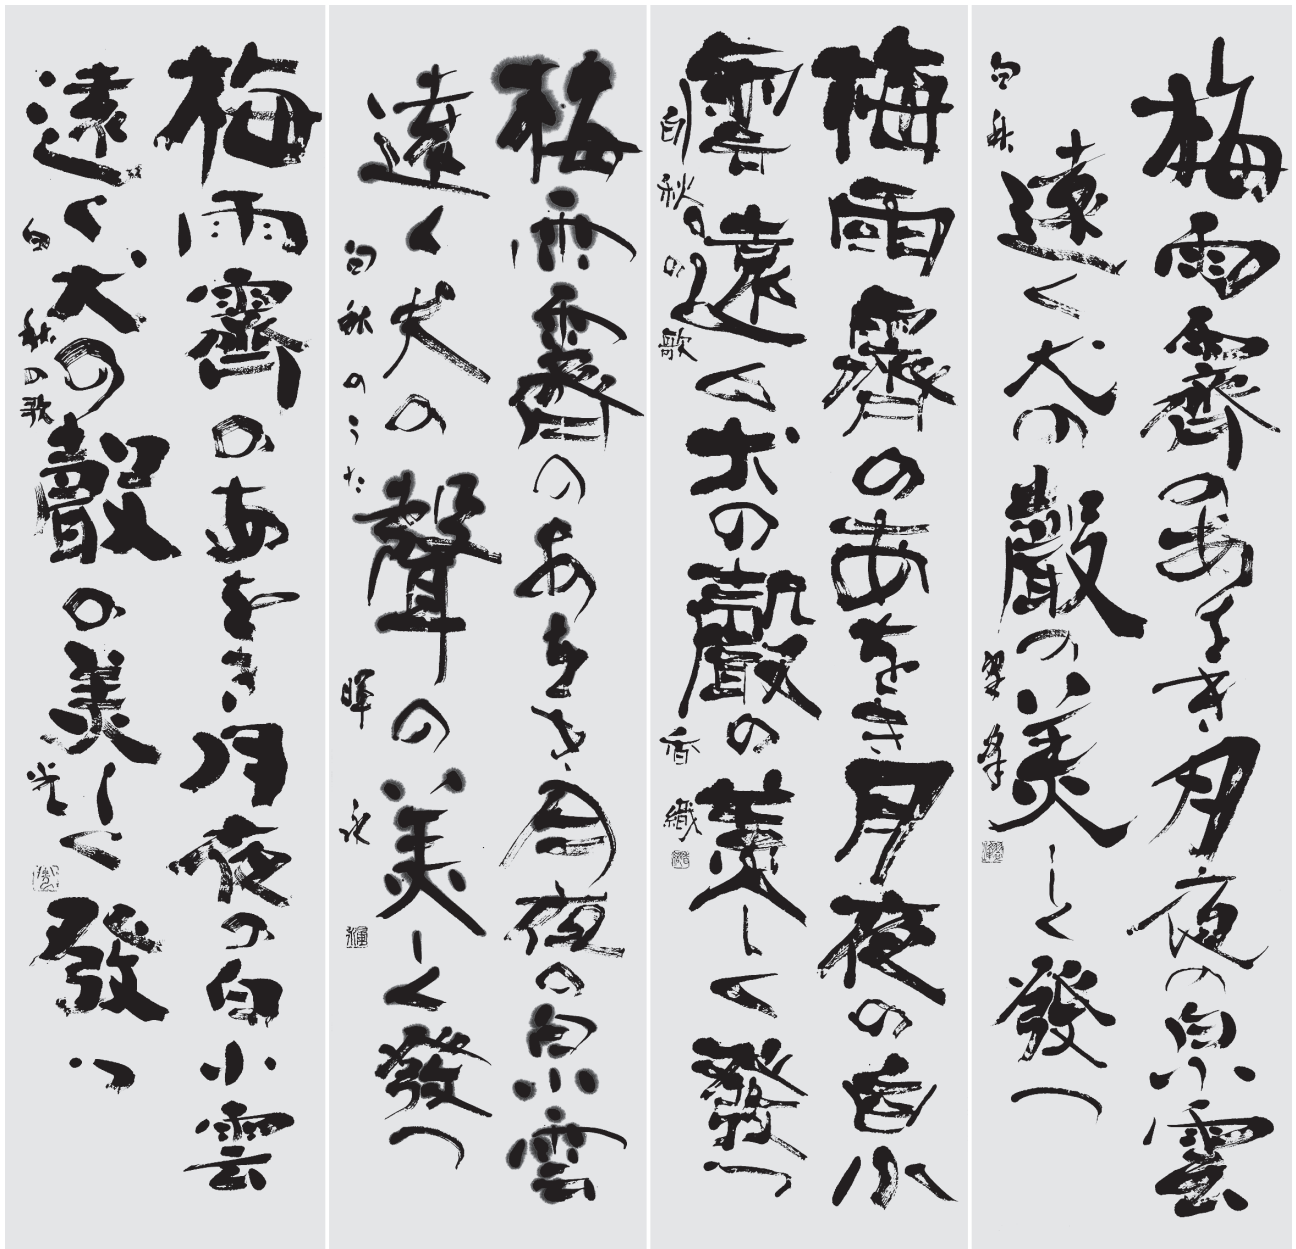 梅雨霽のあをき月夜の白小雲
遠く犬の聲の美しく發つ
白秋 翠峰
梅雨霽のあをき月夜の白小
雲遠く犬の聲の美しく發つ
白秋の歌 香織
梅雨霽のあをき月夜の白小雲
遠く犬の聲の美しく發つ
白秋のうた 暉永
梅雨霽のあをき月夜の白小雲
遠く犬の聲の美しく發つ
白秋の歌 光